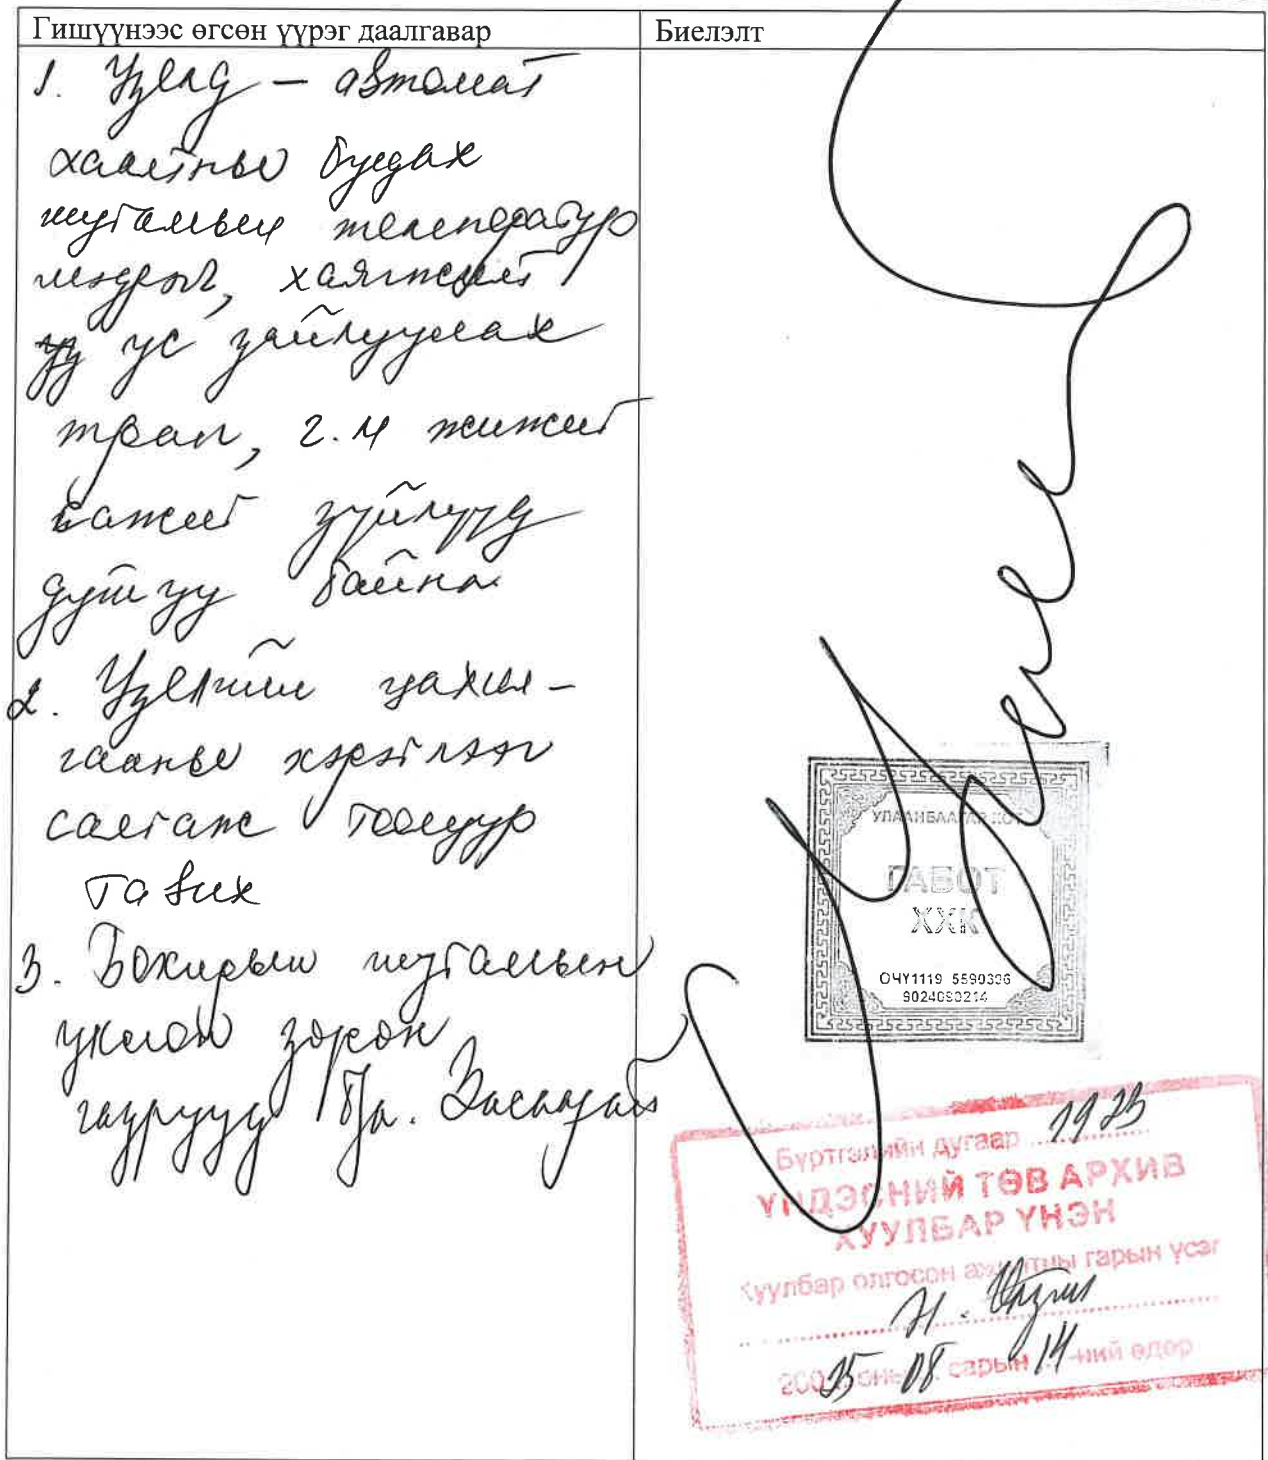 Гишүүнээс өгсөн үүрэг даалгавар
Биелэлт
1. Узелд – автомат
хаалтны буцах
шугамын температур
мэдрэгч, хаягжилт
ус зайлуулах
трап, г.м жижиг
сажиг зүйлүүд
дутуу байна
2. Узелийн цахил-
гааны хэрэглээг
салгаж тоолуур
тавих
3. Бохирын шугамын
зарим
УЛААНБААТАР ХОТ
ГАБОТ
ХХК
ОЧҮ1119 5590336
9024093214
Бүртгэлийн дугаар 1923
ҮНДЭСНИЙ ТӨВ АРХИВ
ХУУЛБАР ҮНЭН
Хуулбар олгосон ажилтны гарын үсэг
2025 оны 08 сарын 14-ний өдөр